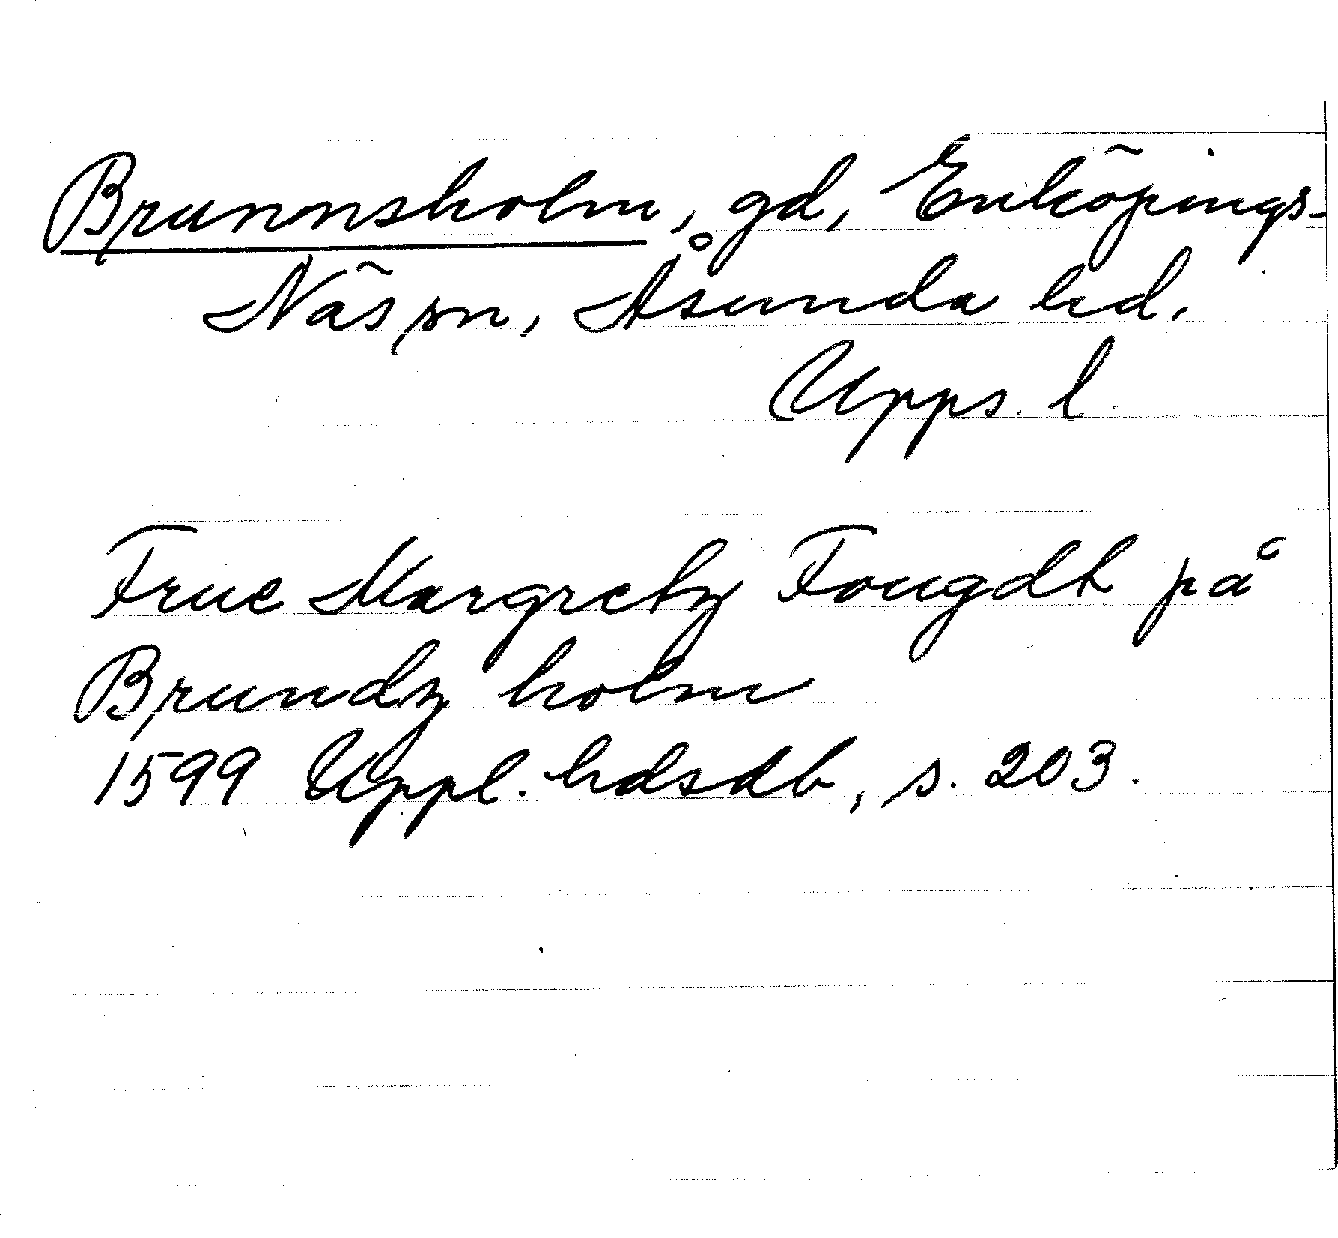 Brunnsholm, gd, Enköpings-
Näs sn, Åsunda hd.
Upps. l.
Frue Margretz Fougdt på
Brundz holm
1599 Uppl. hdsdb, s. 203.